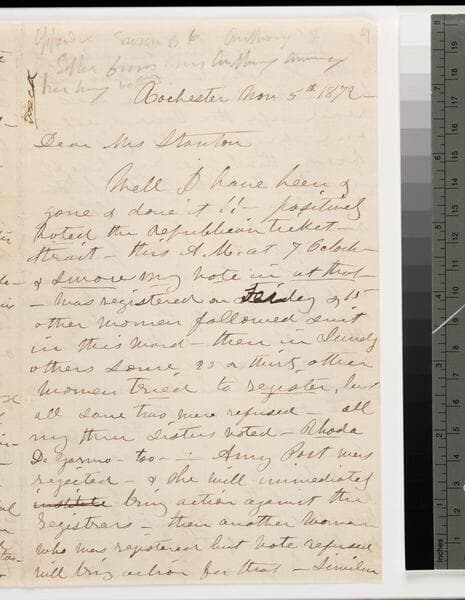 Susan B Anthony
Letter from Miss Anthony
her
Rochester Nov 5th 1872
Dear Mrs Stanton
Well I have been &
gone & done it!! - positively
voted the republican ticket -
strait - this A.M. at 7 Oclock -
& swore my vote in at that -
- was registered on Friday & 15
other women followed suit
in this ward - then in Sundry
others some 20 or thirty other
women tried to register, but
all save two were refused - all
my three sisters voted - Rhoda
De Garmo - too - Amy Post was
rejected - & she will immediately
institute bring action against the
registrars - then another woman
who was registered but vote refused
will bring action for that - Similar
Inches
1 2 3 4 5 6 7
1 2 3 4 5 6 7 8 9 10 11 12 13 14 15 16 17 18 19